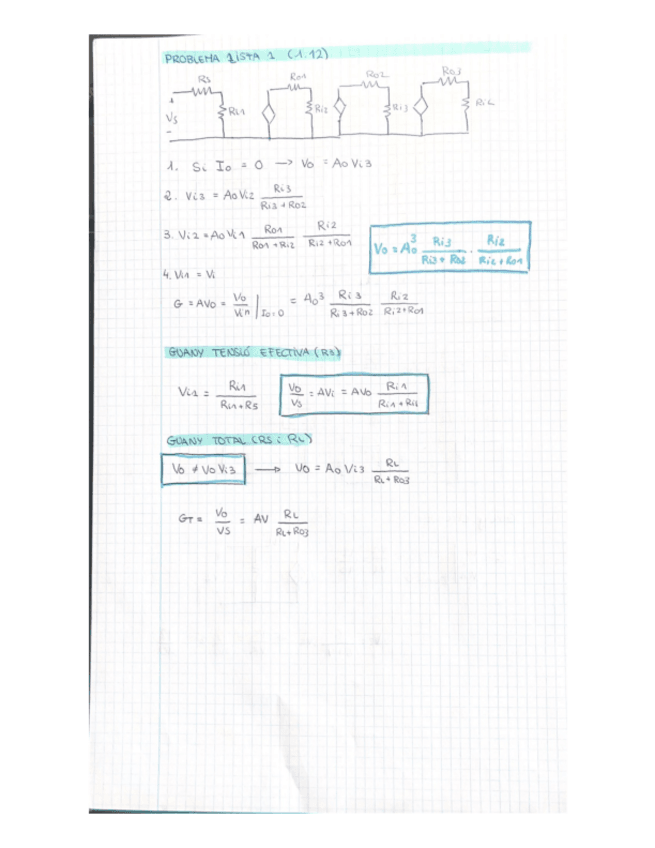 PROBLEMA LISTA 1 (1.12)
Rs Ro1 Ro2 Ro3
+ Vs - Ri1 Ri2 Ri3 RiL
1. Si Io = 0 → Vo = Ao Vi3
2. Vi3 = Ao Vi2 Ri3 / (Ri3 + Ro2)
3. Vi2 = Ao Vi1 Ro1 / (Ro1 + Ri2) Ri2 / (Ri2 + Ro1)
Vo = Ao^3 Ri3 / (Ri3 + Ro2) · Ri2 / (Ri2 + Ro1)
4. Vi1 = Vi
G = AVo = Vo / Vin | Io=0 = Ao^3 Ri3 / (Ri3 + Ro2) Ri2 / (Ri2 + Ro1)
GUANY TENSIÓ EFECTIVA (RS)
Vi1 = Ri1 / (Ri1 + RS)
Vo / VS = AVi = AVo Ri1 / (Ri1 + Ri1)
GUANY TOTAL (RS i RL)
Vo ≠ Vo Vi3 → Vo = Ao Vi3 RL / (RL + Ro3)
GT = Vo / VS = AV RL / (RL + Ro3)